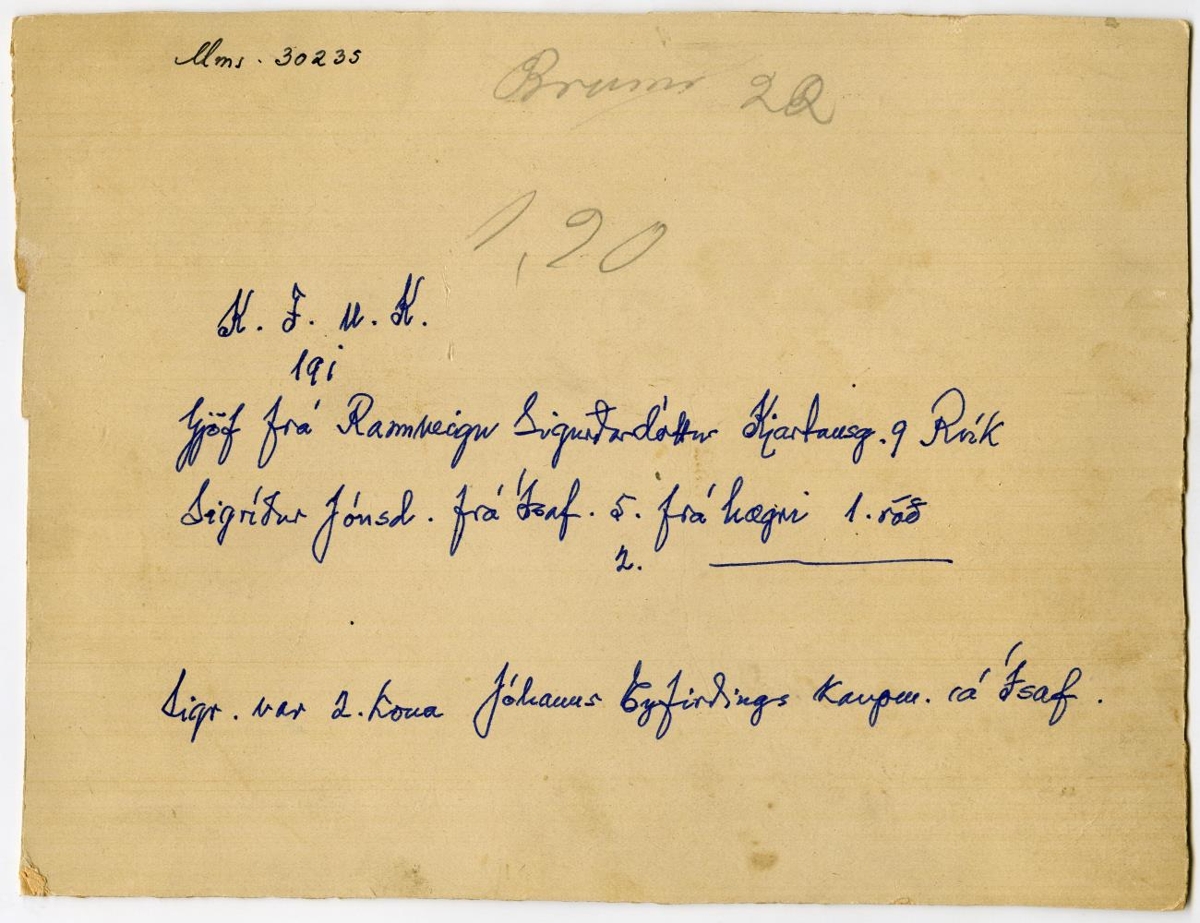 Mms. 30235
22
1,20
K. F. U. K.
191
Gjöf frá Rannveigu Sigurðardóttur Kjartansg. 9 Rvík
Sigríður Jónsd. frá Ísaf. 5. frá hægri 1. röð
2.
Sigr. var 2. kona Jóhanns Eyfirðings kaupm. á Ísaf.